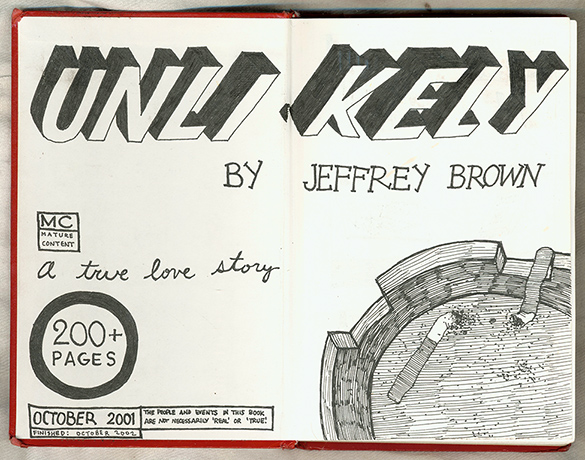 UNLIKELY
BY JEFFREY BROWN
MC
MATURE
CONTENT
a true love story
200+
PAGES
OCTOBER 2001
FINISHED: OCTOBER 2002
THE PEOPLE AND EVENTS IN THIS BOOK
ARE NOT NECESSARILY 'REAL' OR 'TRUE'.